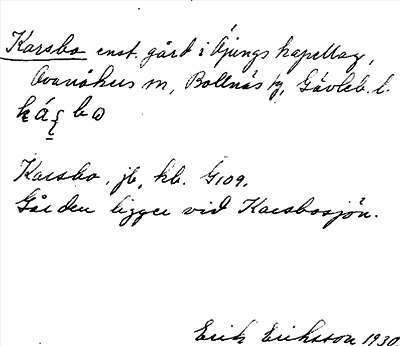 Karsbo enst. gård i Öjungs kapellag,
Ovanåkers m, Bollnäs kg, Gävleb. l.
Karsbo, jb, kb. G109.
Gården ligger vid Karsbosjön.
Erik Eriksson 1930.